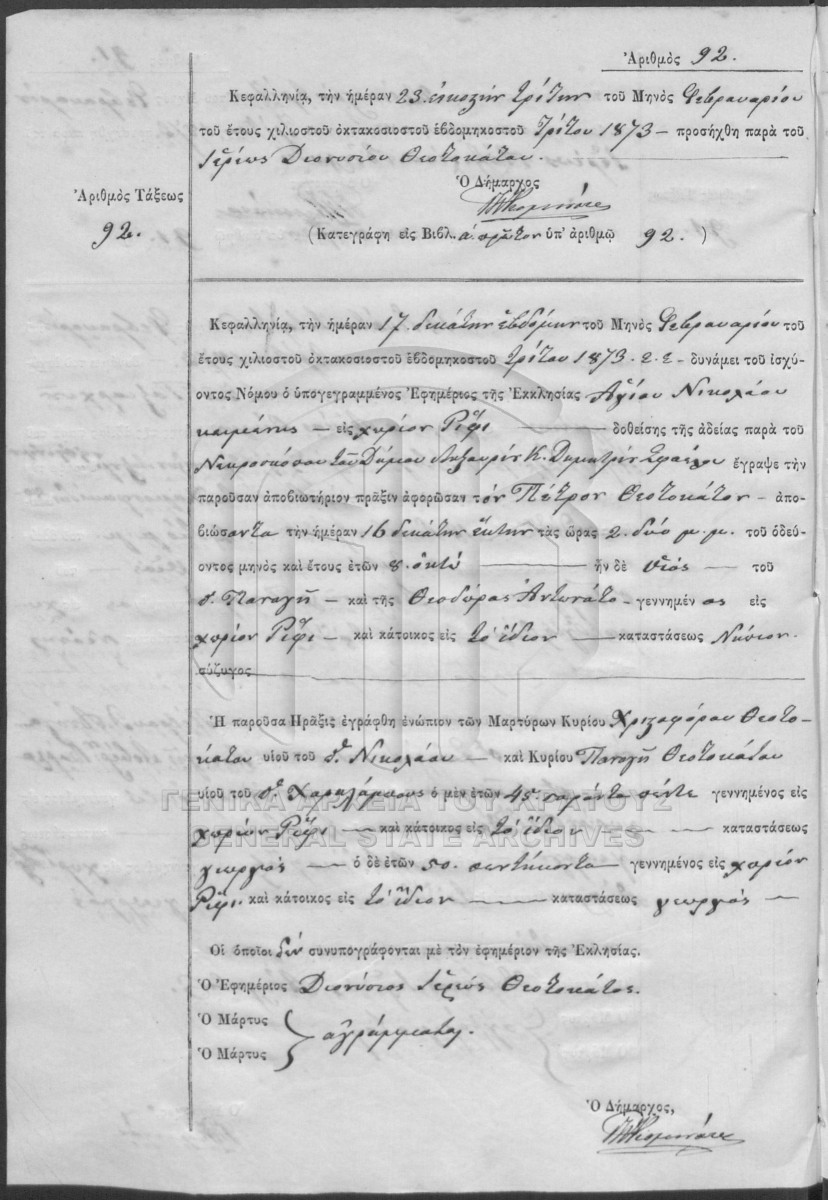 Ἀριθμὸς 92.
Κεφαλληνίᾳ, τὴν ἡμέραν 23. εἰκοστὴν τρίτην τοῦ Μηνὸς Φεβρουαρίου
τοῦ ἔτους χιλιοστοῦ ὀκτακοσιοστοῦ ἑβδομηκοστοῦ Τρίτου 1873 — προσήχθη παρὰ τοῦ
Ἱερέως Διονυσίου Θεοτοκάτου.
Ὁ Δήμαρχος
Ἀριθμὸς Τάξεως
92.
(Κατεγράφη εἰς Βιβλ. ά. πρῶτον ὑπ' ἀριθμῷ 92.)
Κεφαλληνίᾳ, τὴν ἡμέραν 17. δεκάτην ἑβδόμην τοῦ Μηνὸς Φεβρουαρίου τοῦ
ἔτους χιλιοστοῦ ὀκτακοσιοστοῦ ἑβδομηκοστοῦ τρίτου 1873. Ε. Ε — δυνάμει τοῦ ἰσχύ-
οντος Νόμου ὁ ὑπογεγραμμένος Ἐφημέριος τῆς Ἐκκλησίας Ἁγίου Νικολάου
— εἰς χωρίον Ρίφι — δοθείσης τῆς ἀδείας παρὰ τοῦ
Νεκροσκόπου τοῦ Δήμου Ληξουρίου Κ. Δημητρίου ἔγραψε τὴν
παροῦσαν ἀποβιωτήριον πρᾶξιν ἀφορῶσαν τὸν Πέτρον Θεοτοκάτον — ἀπο-
βιώσαντα τὴν ἡμέραν 16 δεκάτην ἕκτην τὰς ὥρας 2. δύο μ. μ. τοῦ ὁδεύ-
οντος μηνὸς καὶ ἔτους ἐτῶν 8. ὀκτώ — ἦν δὲ υἱὸς — τοῦ
π. Παναγῆ — καὶ τῆς Θεοδώρας Ἀντωνάτο — γεννημένος εἰς
χωρίον Ρίφι — καὶ κάτοικος εἰς τὸ ἴδιον — καταστάσεως Νήπιον.
σύζυγος
Ἡ παροῦσα Πρᾶξις ἐγράφθη ἐνώπιον τῶν Μαρτύρων Κυρίου Χριζαφόρου Θεοτο-
κάτου υἱοῦ τοῦ π. Νικολάου — καὶ Κυρίου Παναγῆ Θεοτοκάτου
υἱοῦ τοῦ π. Χαραλάμπους ὁ μὲν ἐτῶν 45. σαράντα πέντε γεννημένος εἰς
χωρίον Ρίφι — καὶ κάτοικος εἰς τὸ ἴδιον — καταστάσεως
γεωργός — ὁ δὲ ἐτῶν 50. πεντήκοντα γεννημένος εἰς χωρίον
Ρίφι καὶ κάτοικος εἰς τὸ ἴδιον — καταστάσεως γεωργός —
ΓΕΝΙΚΑ ΑΡΧΕΙΑ ΤΟΥ ΚΡΑΤΟΥΣ
GENERAL STATE ARCHIVES
Οἱ ὁποῖοι δὲν συνυπογράφονται μὲ τὸν ἐφημέριον τῆς Ἐκλησίας.
Ὁ Ἐφημέριος Διονύσιος Ἱερεὺς Θεοτοκάτος.
Ὁ Μάρτυς
ἀγράμματοι.
Ὁ Μάρτυς
Ὁ Δήμαρχος,